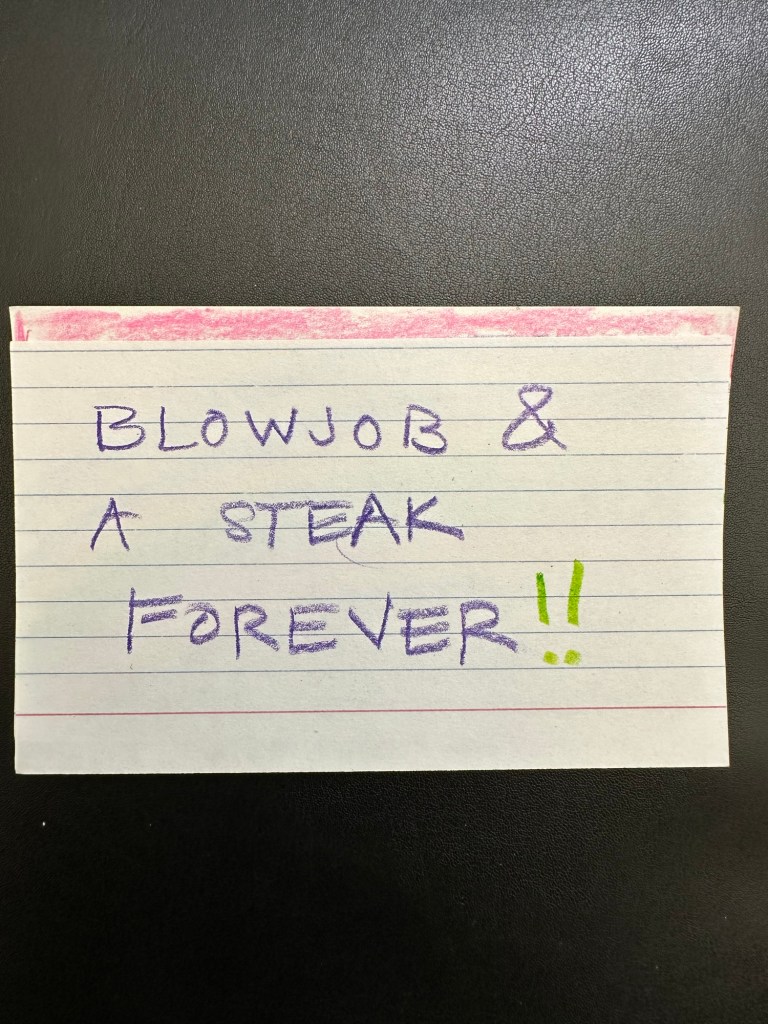 BLOWJOB &
A STEAK
FOREVER!!